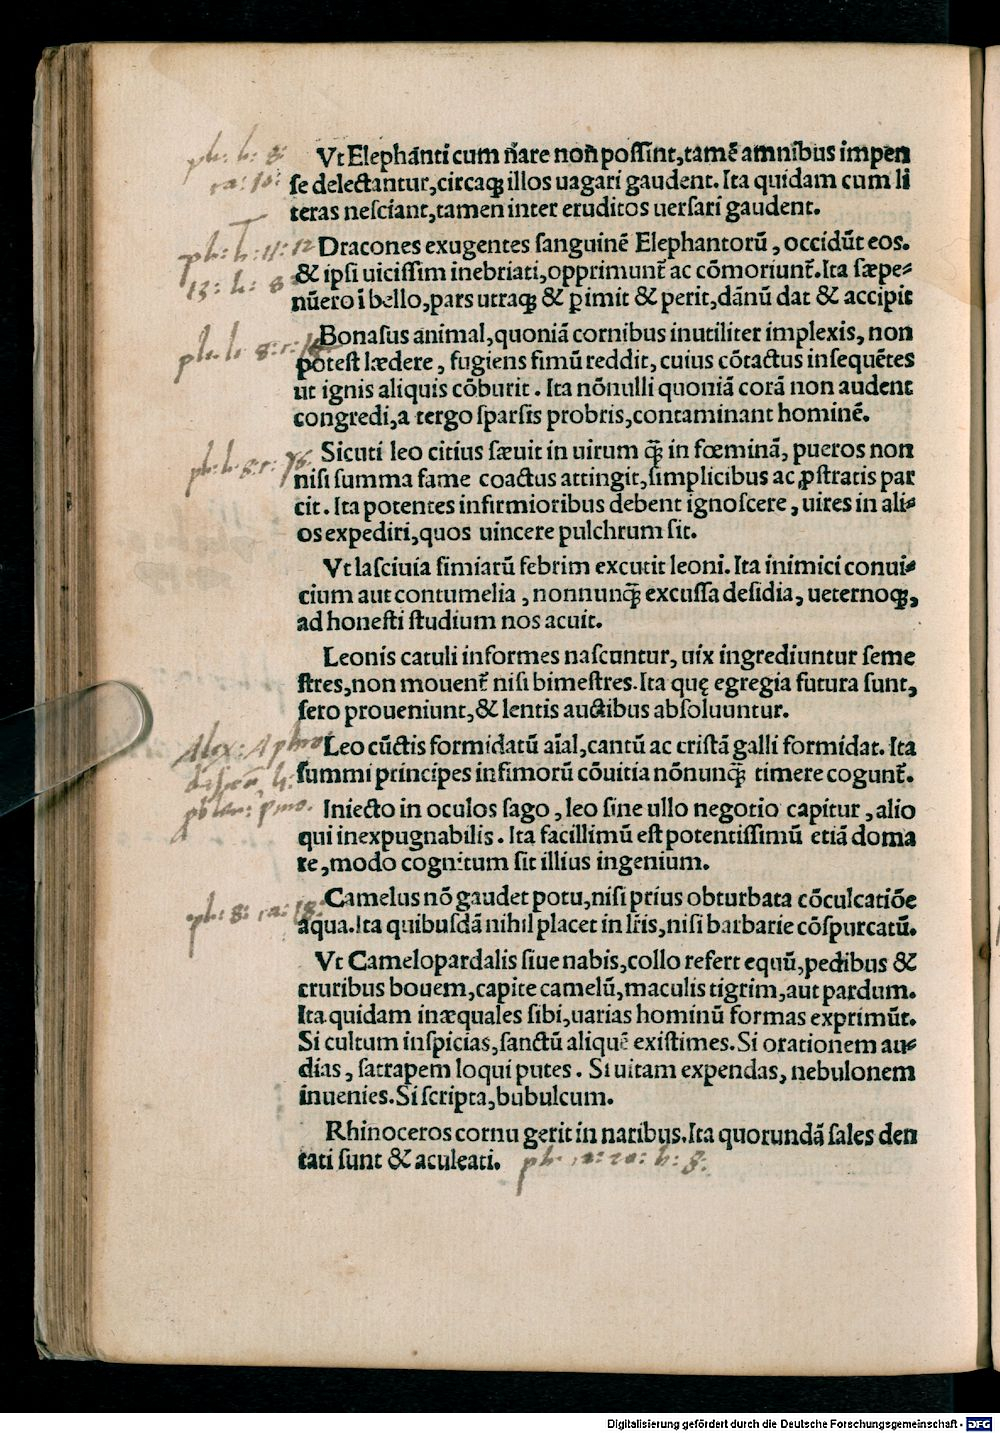 Vt Elephãnti cum ñare non possint, tamẽ amnibus impen
se delectantur, circaqꝫ illos uagari gaudent. Ita quidam cum li
teras nesciant, tamen inter eruditos uersari gaudent.
Dracones exugentes sanguinẽ Elephantorũ, occidũt eos.
& ipsi uicissim inebriati, opprimunt̃ ac cõmoriunt̃. Ita sæpe-
nũero ĩ bello, pars utraqꝫ & ꝑimit & perit, dãnũ dat & accipit
Bonasus animal, quoniã cornibus inutiliter implexis, non
potest lædere, fugiens fimũ reddit, cuius cõtactus insequẽtes
ut ignis aliquis cõburit. Ita nõnulli quoniã corã non audent
congredi, a tergo sparsis probris, contaminant hominẽ.
Sicuti leo citius sæuit in uirum q̃ꝫ in fœminã, pueros non
nisi summa fame coactus attingit, simplicibus ac ꝓstratis par
cit. Ita potentes infirmioribus debent ignoscere, uires in ali-
os expediri, quos uincere pulchrum sit.
Vt lasciuia simiarũ febrim excutit leoni. Ita inimici conui-
cium aut contumelia, nonnunq̃ꝫ excussa desidia, ueternoqꝫ,
ad honesti studium nos acuit.
Leonis catuli informes nascuntur, uix ingrediuntur seme
stres, non mouent̃ nisi bimestres. Ita quę egregia futura sunt,
sero proueniunt, & lentis auctibus absoluuntur.
Leo cũctis formidatũ aĩal, cantũ ac cristã galli formidat. Ita
summi principes infimorũ cõuitia nõnunq̃ꝫ timere cogunt̃.
Iniecto in oculos sago, leo sine ullo negotio capitur, alio
qui inexpugnabilis. Ita facillimũ est potentissimũ etiã doma
re, modo cognitum sit illius ingenium.
Camelus nõ gaudet potu, nisi prius obturbata cõculcatiõe
aqua. Ita quibusdã nihil placet in lr̃is, nisi barbarie cõspurcatũ.
Vt Camelopardalis siue nabis, collo refert equũ, pedibus &
cruribus bouem, capite camelũ, maculis tigrim, aut pardum.
Ita quidam inæquales sibi, uarias hominũ formas exprimũt.
Si cultum inspicias, sanctũ aliquẽ existimes. Si orationem au-
dias, satrapem loqui putes. Si uitam expendas, nebulonem
inuenies. Si scripta, bubulcum.
Rhinoceros cornu gerit in naribus. Ita quorundã sales den
tati sunt & aculeati.
Digitalisierung gefördert durch die Deutsche Forschungsgemeinschaft - DFG